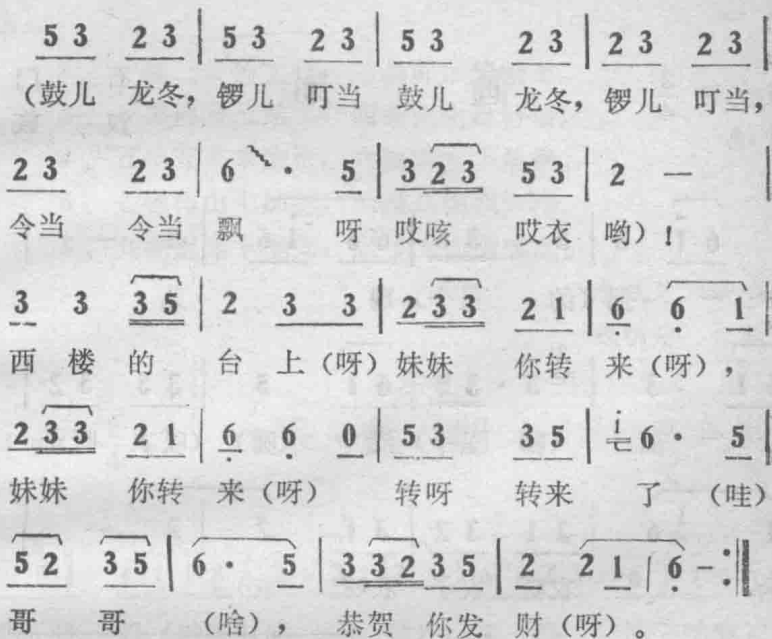 5 3 2 3 | 5 3 2 3 | 5 3 2 3 | 2 3 2 3 |
（鼓儿 龙冬，锣儿 叮当 鼓儿 龙冬，锣儿 叮当，
2 3 2 3 | 6 · 5 | 3 2 3 5 3 | 2 — |
令当 令当 飘 呀 哎咳 哎衣 哟）！
3 3 3 5 | 2 3 3 | 2 3 3 2 1 | 6 6 1 |
西 楼 的 台 上（呀）妹妹 你转 来（呀），
2 3 3 2 1 | 6 6 0 | 5 3 3 5 | i 6 · 5 |
妹妹 你转 来（呀） 转呀 转来 了 （哇）
5 2 3 5 | 6 · 5 | 3 3 2 3 5 | 2 2 1 | 6 - :‖
哥 哥 （啥）， 恭贺 你发 财（呀）。